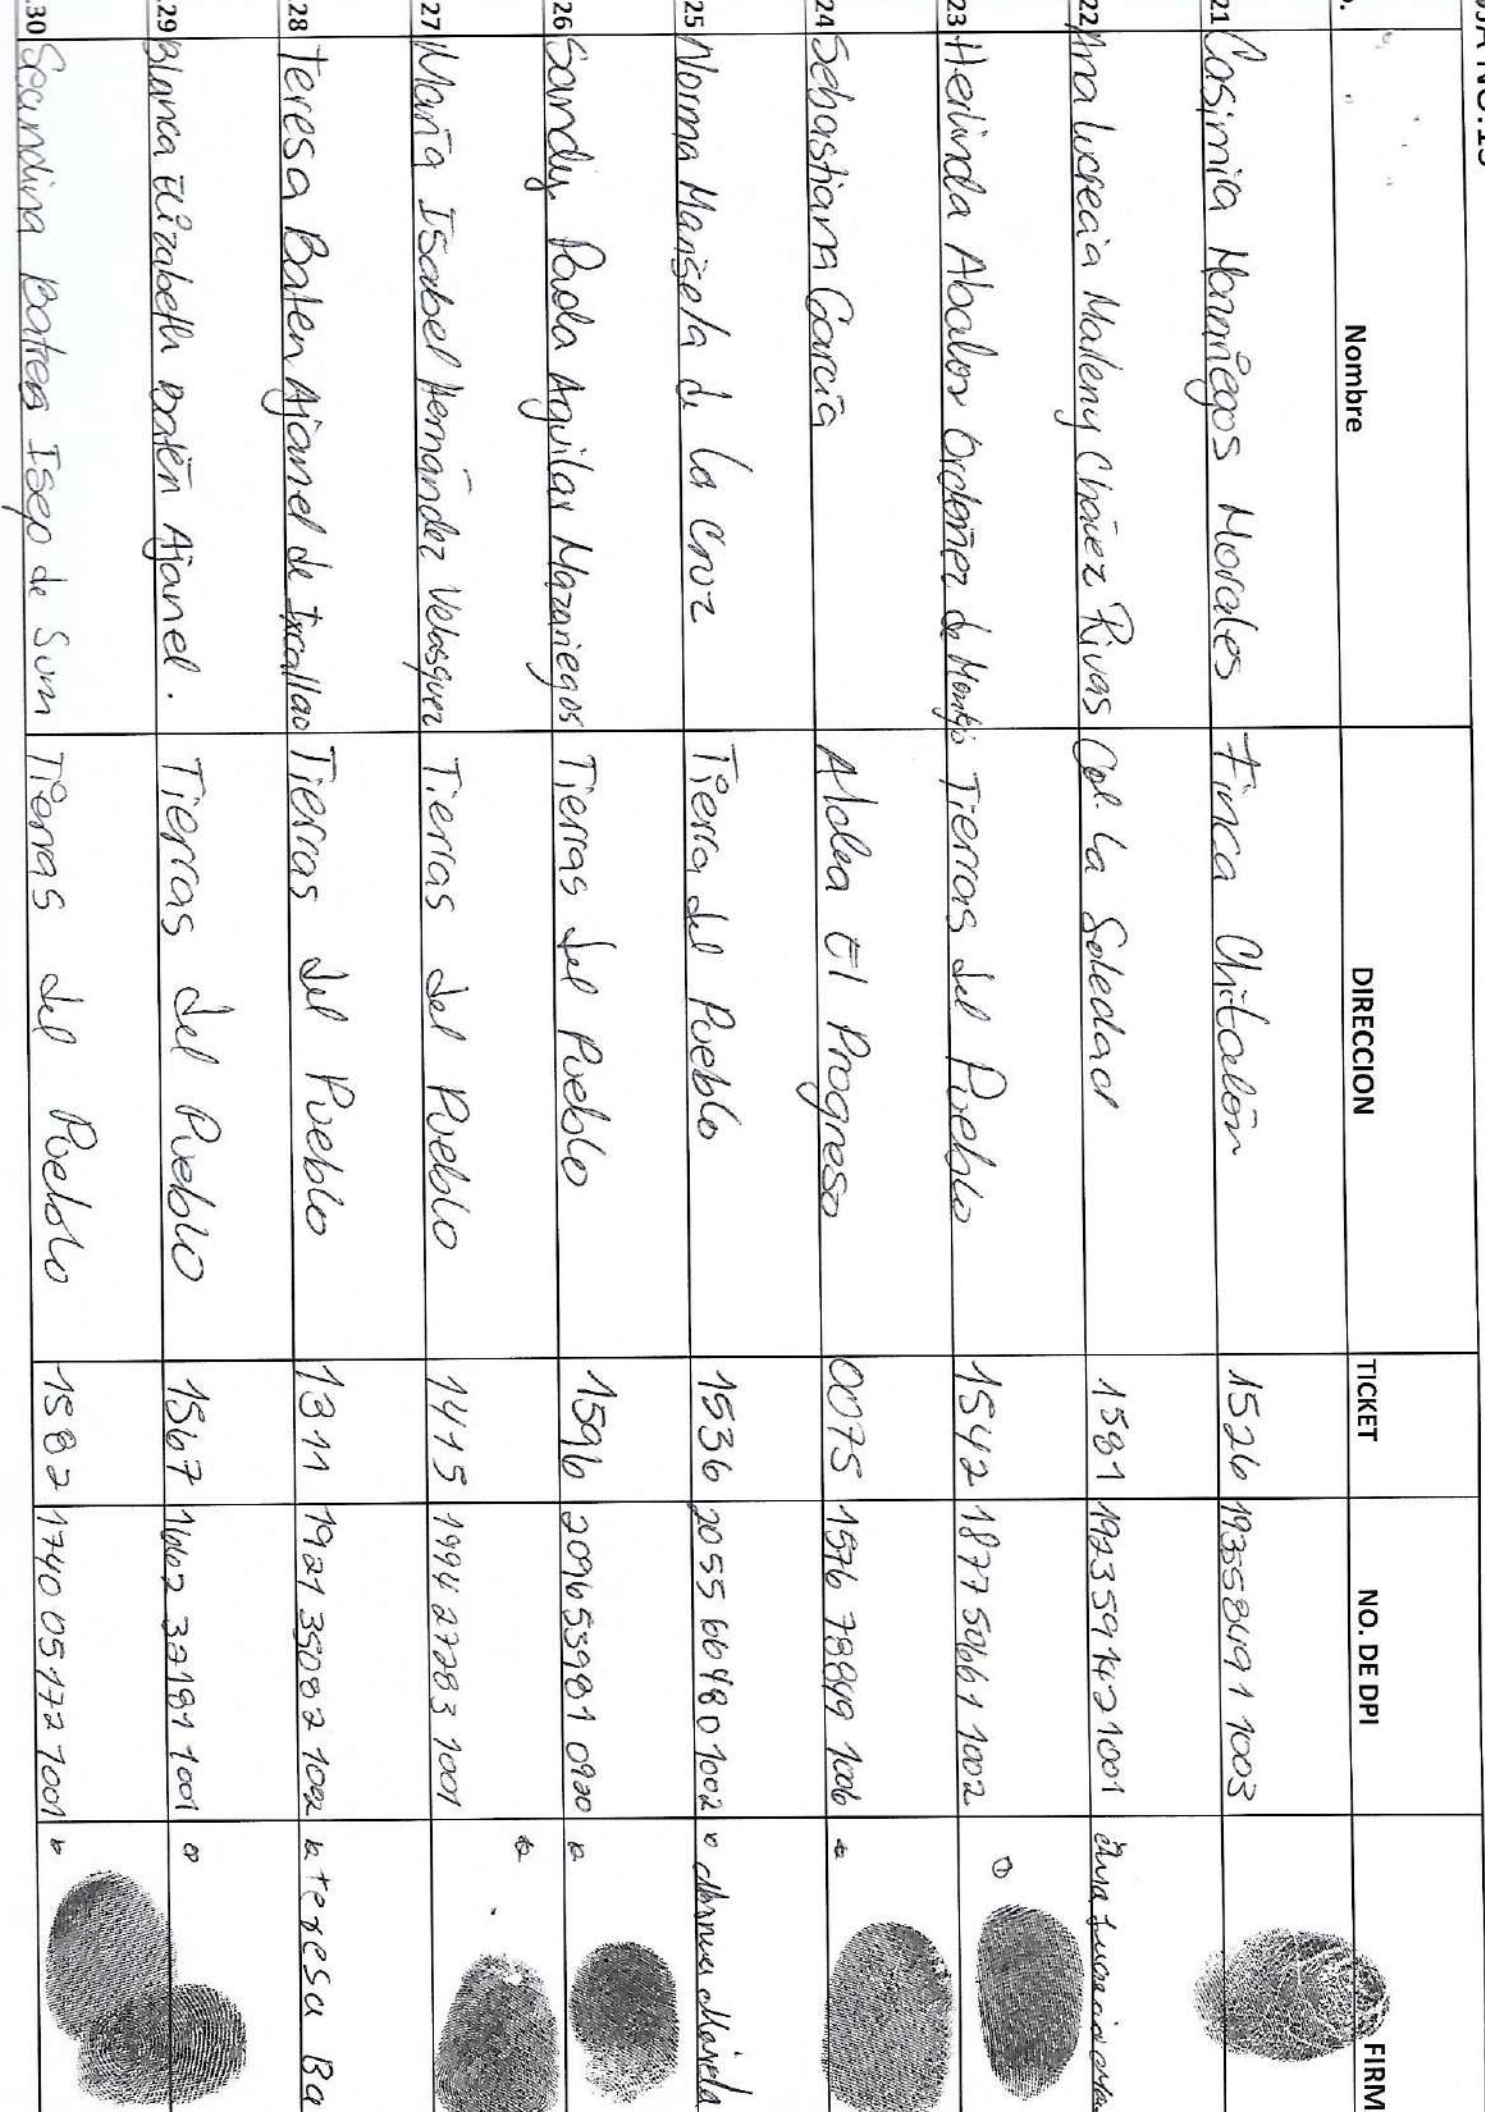 Nombre DIRECCION TICKET NO. DE DPI FIRM
21 Casimira Mazariegos Morales Finca Chitalón 1526 1935584911003
22 Ana lucrecia Marleny Chávez Rivas Col. La Soledad 1581 1923591421001
23 Herlinda Abalos Ordoñez de Montejo Tierras del Pueblo 1542 1877506611002
24 Sebastiana García Aldea El Progreso 0075 1576 78849 1006
25 Norma Marisela de La Cruz Tierra del Pueblo 1536 2055 66480 1002 Norma Marisela
26 Sandy Paola Aguilar Mazariegos Tierras del Pueblo 1596 2096 53981 0920
27 María Isabel Hernández Velasquez Tierras del Pueblo 1415 1994 27283 1001
28 Teresa Baten Ajanel de Ixcallao Tierras del Pueblo 1311 1921 35082 1002 teresa Ba
29 Blanca Elizabeth Batén Ajanel. Tierras del Pueblo 1567 1662 32181 1001
30 Batres de Sum Tierras del Pueblo 1582 1740 05172 1001